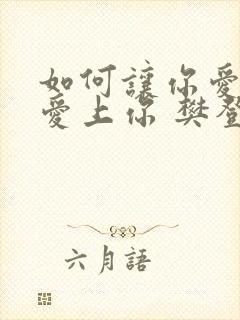 如何讓你愛
愛上你 樊登
六月語